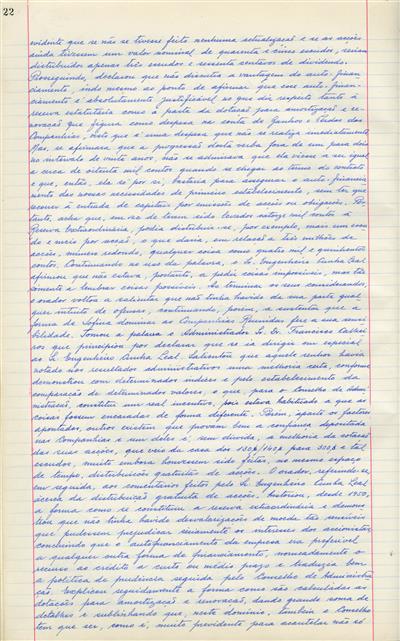 22
evidente que se não se tivesse feito nenhuma actualização e se as acções
ainda tivessem um valor nominal de quarenta e cinco escudos, seriam
distribuidos apenas três escudos e sessenta centavos de dividendo.
Prosseguindo, declarou que não discutia a vantagem do auto-finan-
ciamento, indo mesmo ao ponto de afirmar que esse auto-finan-
ciamento é absolutamente justificável no que diz respeito tanto à
reserva estatutária como à parte da dotação para amortização e re-
novação que figura como despesa na conta de Ganhos e Perdas das
Companhias, visto que é uma despesa que não se realiza imediatamente.
Mas, se afirmara que a progressão desta verba fora de um para dois
no intervalo de vinte anos, não se admirava que ela viesse a ser igual
a cerca de oitenta mil contos quando se chegar ao termo do contrato
e que, então, ela só por si, bastaria para assegurar o auto-financia-
mento das novas necessidades de primeiro estabelecimento, sem ter que
recorrer à entrada de capitais por emissões de acções ou obrigações. Por-
tanto, acha que, em vez de terem sido levados catorze mil contos à
Reserva Extraordinária, podia distribuir-se, por exemplo, mais um escu-
do e meio por acção, o que daria, em relação a três milhões de
acções, número redondo, qualquer coisa como quatro mil e quinhentos
contos. Continuando no uso da palavra, o Sr. Engenheiro Cunha Leal
afirmou que não estava, portanto, a pedir coisas impossíveis, mas tão
somente a lembrar coisas possíveis. Ao terminar as suas considerações,
o orador voltou a salientar que não tinha havido da sua parte qual-
quer intuito de ofensa, continuando, porém, a sustentar que a
forma da Sofina dominar as Companhias Reunidas fere a sua sensi-
bilidade. Tomou a palavra o Administrador Sr. Dr. Francisco
que principiou por declarar que se ia dirigir em especial
ao Sr. Engenheiro Cunha Leal. Salientou que aquele senhor havia
notado nos resultados administrativos uma melhoria certa, conforme
demonstrou com determinados índices e pelo estabelecimento da
comparação de determinados valores, o que, para o Conselho de Admi-
nistração, constitui um real incentivo, pois estava habituado a que as
coisas fossem encaradas de forma diferente. Porém, àparte os factores
apontados, outros existem que provam bem a confiança depositada
nas Companhias e um deles é, sem dúvida, a melhoria da cotação
das suas acções, que veio da casa dos 130$/140$ para 200$ e tal
escudos, muito embora houvessem sido feitas, no mesmo espaço
de tempo, distribuições gratuitas de acções. O orador, referindo-se,
em seguida, aos comentários feitos pelo Sr. Engenheiro Cunha Leal
àcerca da distribuição gratuita de acções, historiou, desde 1950,
a forma como se constituiu a reserva extraordinária e demons-
trou que não tinha havido desvalorizações de moeda tão sensíveis
que pudessem prejudicar sèriamente os interesses do accionista,
concluindo que o autofinanciamento da empresa era preferível
a qualquer outra forma de financiamento, nomeadamente o
recurso ao crédito a curto ou médio prazo e traduzia bem
a política de prudência seguida pelo Conselho de Administra-
ção. Explicou seguidamente a forma como são calculadas as
dotações para amortização e renovação, dando grande soma de
detalhes e sublinhando que, neste domínio, também o Conselho
tem que ser, como é, muito previdente para acautelar não só